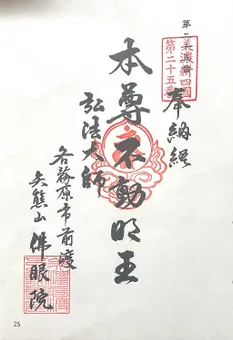 第二
美濃新四國
第二十五番
奉納経
本尊不動明王
弘法大師
各務原市前渡
矢熊山 佛眼院
26